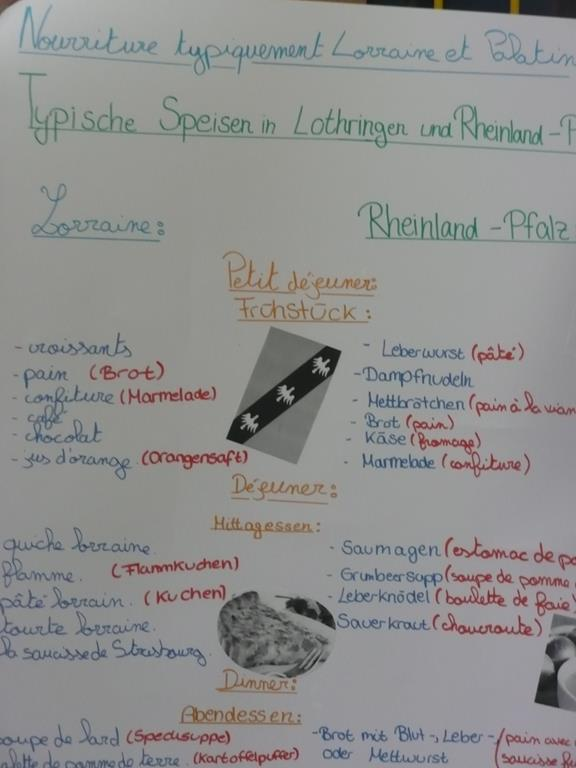 Nourriture typiquement Lorraine et Palatin
Typische Speisen in Lothringen und Rheinland-P
Lorraine:
Rheinland-Pfalz
Petit déjeuner:
Frühstück:
- croissants
- pain (Brot)
- confiture (Marmelade)
- café
- chocolat
- jus d'orange (Orangensaft)
- Leberwurst (pâté)
- Dampfnudeln
- Mettbrötchen (pain à la vian
- Brot (pain)
- Käse (fromage)
- Marmelade (confiture)
Déjeuner:
Mittagessen:
quiche lorraine.
flamme. (Flammkuchen)
pâté lorrain. (Kuchen)
tourte lorraine.
la saucisse de Strasbourg.
- Saumagen (estomac de po
- Grumbeersupp (soupe de pomme
- Leberknödel (boulette de foie)
Sauerkraut (choucroute)
Dinner:
Abendessen:
oupe de lard (Specksuppe)
lette de pomme de terre. (Kartoffelpuffer)
- Brot mit Blut-, Leber- (pain avec
oder Mettwurst (saucisse